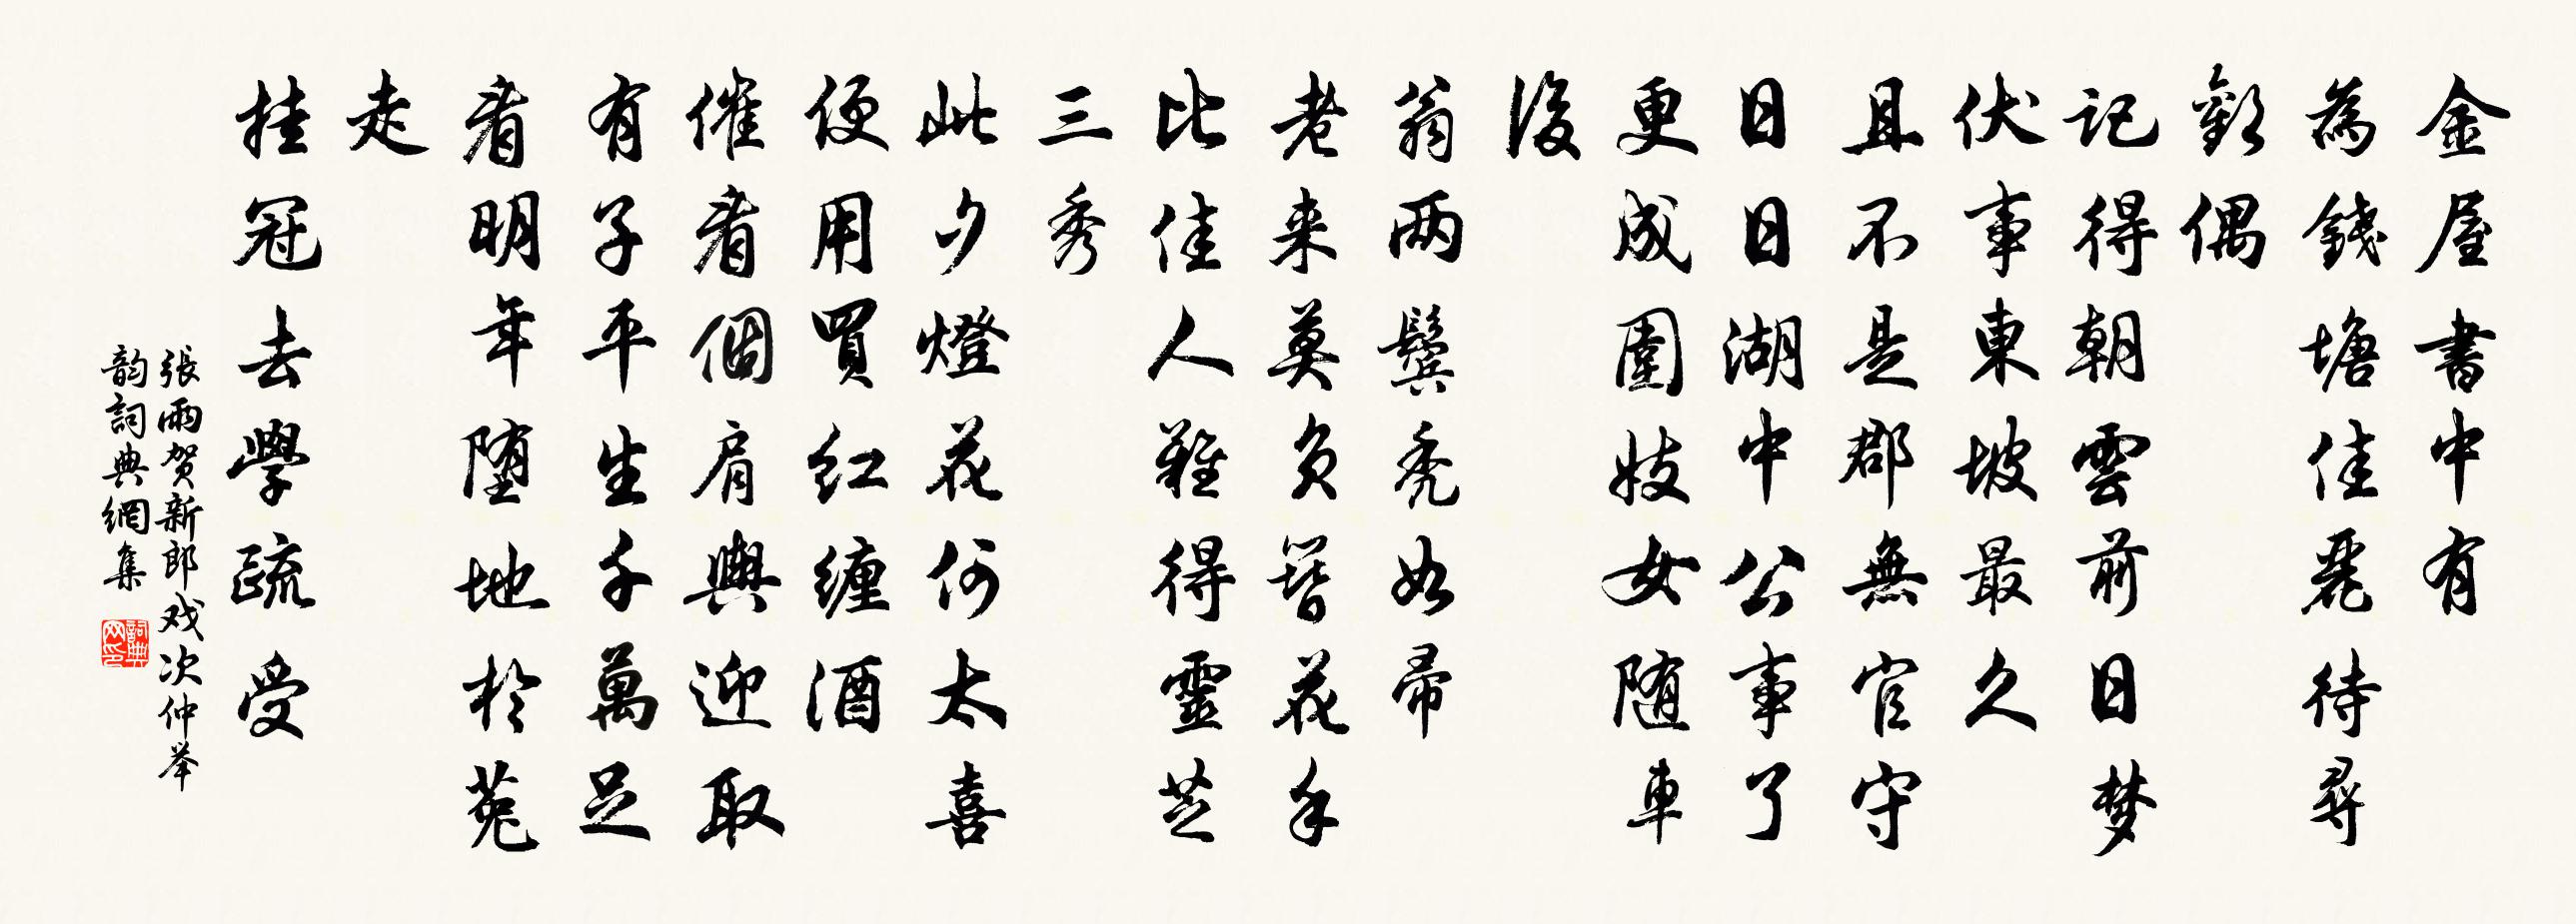 金屋書中有
為錢塘佳麗待尋
歡偶
記得朝雲前日梦
伏事東坡最久
且不是郡無官守
日日湖中公事了
更成圍妓女随車
後
翁两鬓秃如帚
老来莫负簪花手
比佳人難得靈芝
三秀
此夕燈花何太喜
便用買红缠酒
催看個肩輿迎取
有子平生千萬足
看明年堕地於菟
走
挂冠去學疏受
張雨贺新郎戏次仲举
韵詞典網集
詞典网印